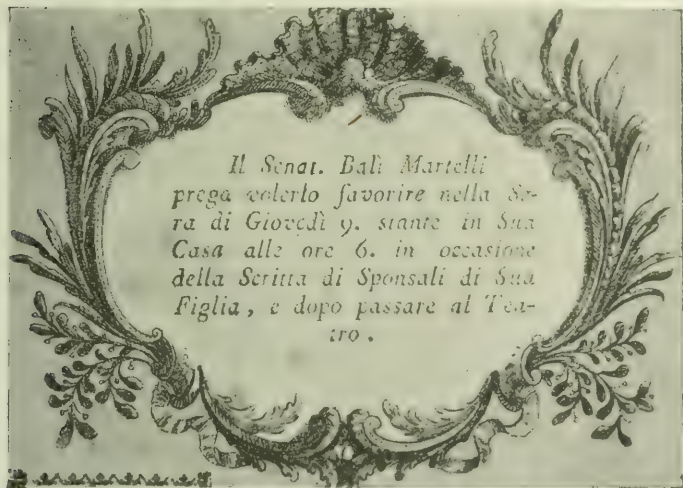 Il Senat. Balì Martelli
prega volerlo favorire nella Se-
ra di Giovedì 9. stante in Sua
Casa alle ore 6. in occasione
della Scritta di Sponsali di Sua
Figlia, e dopo passare al Tea-
tro.